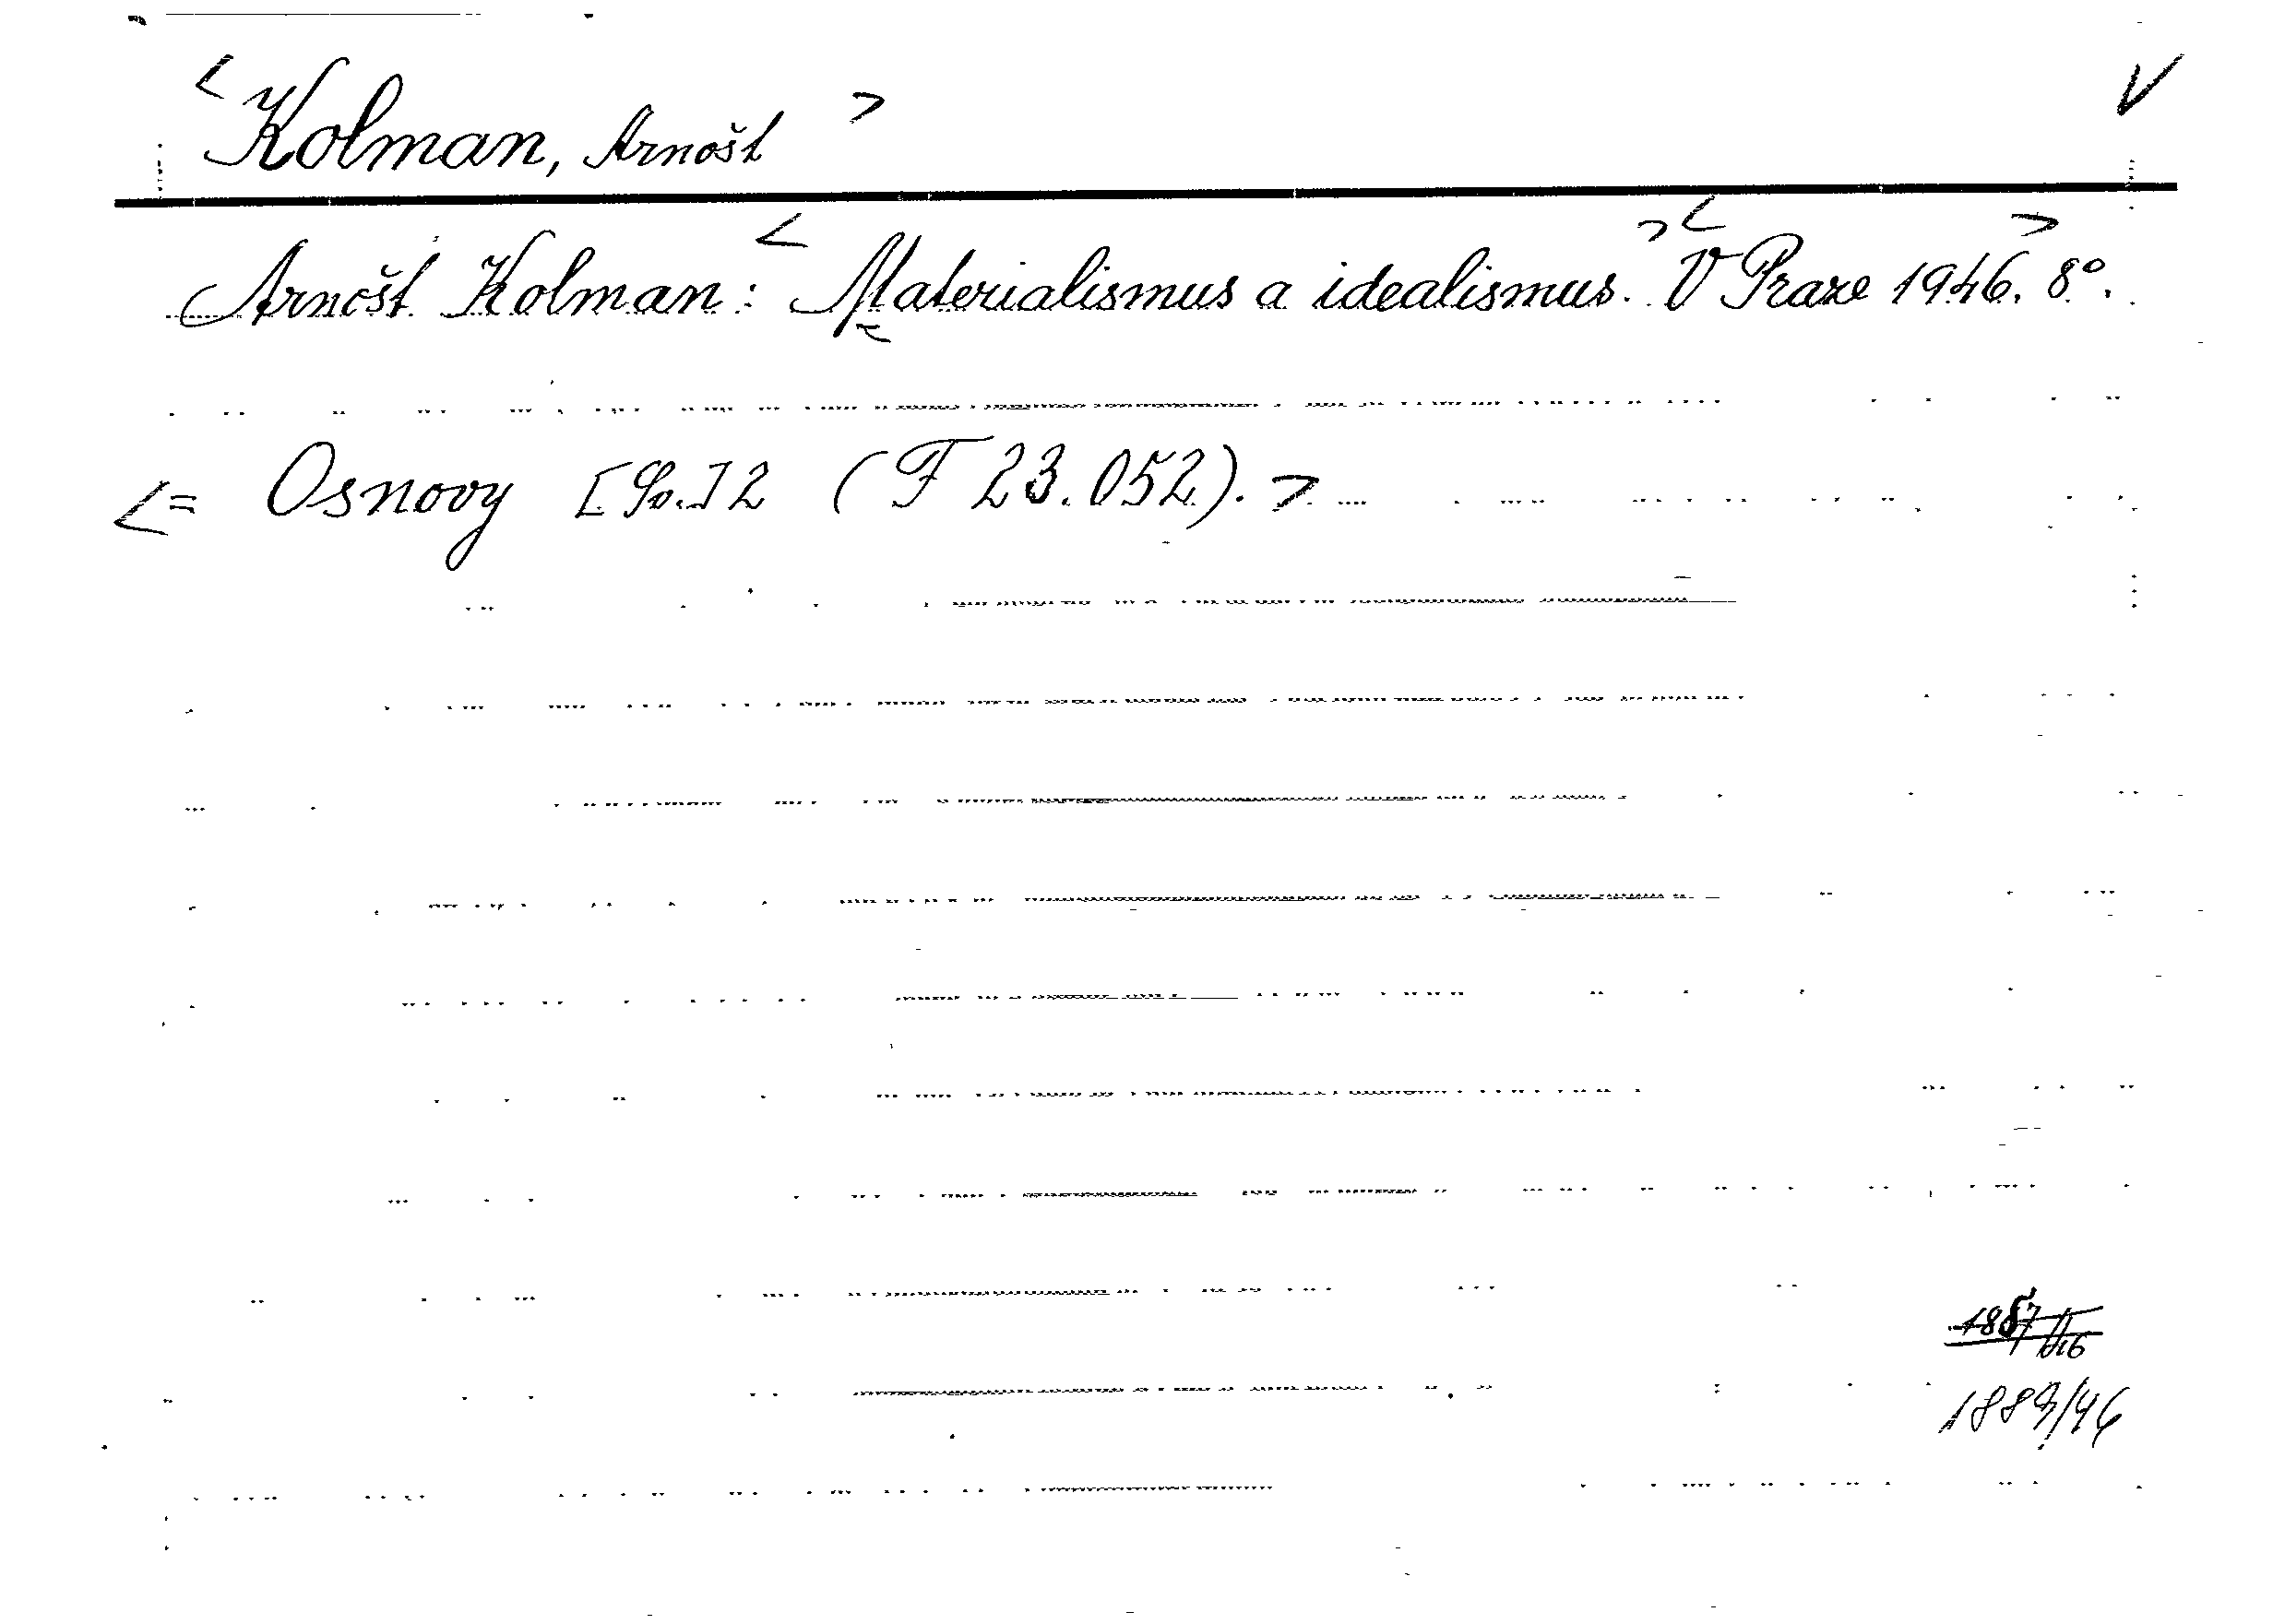 < Kolman, Arnošt > V
Arnošt Kolman: < Materialismus a idealismus. > < V Praze 1946. > 8°.
<= Osnovy [Sv.] 2 (F 23.052). >
1889/46